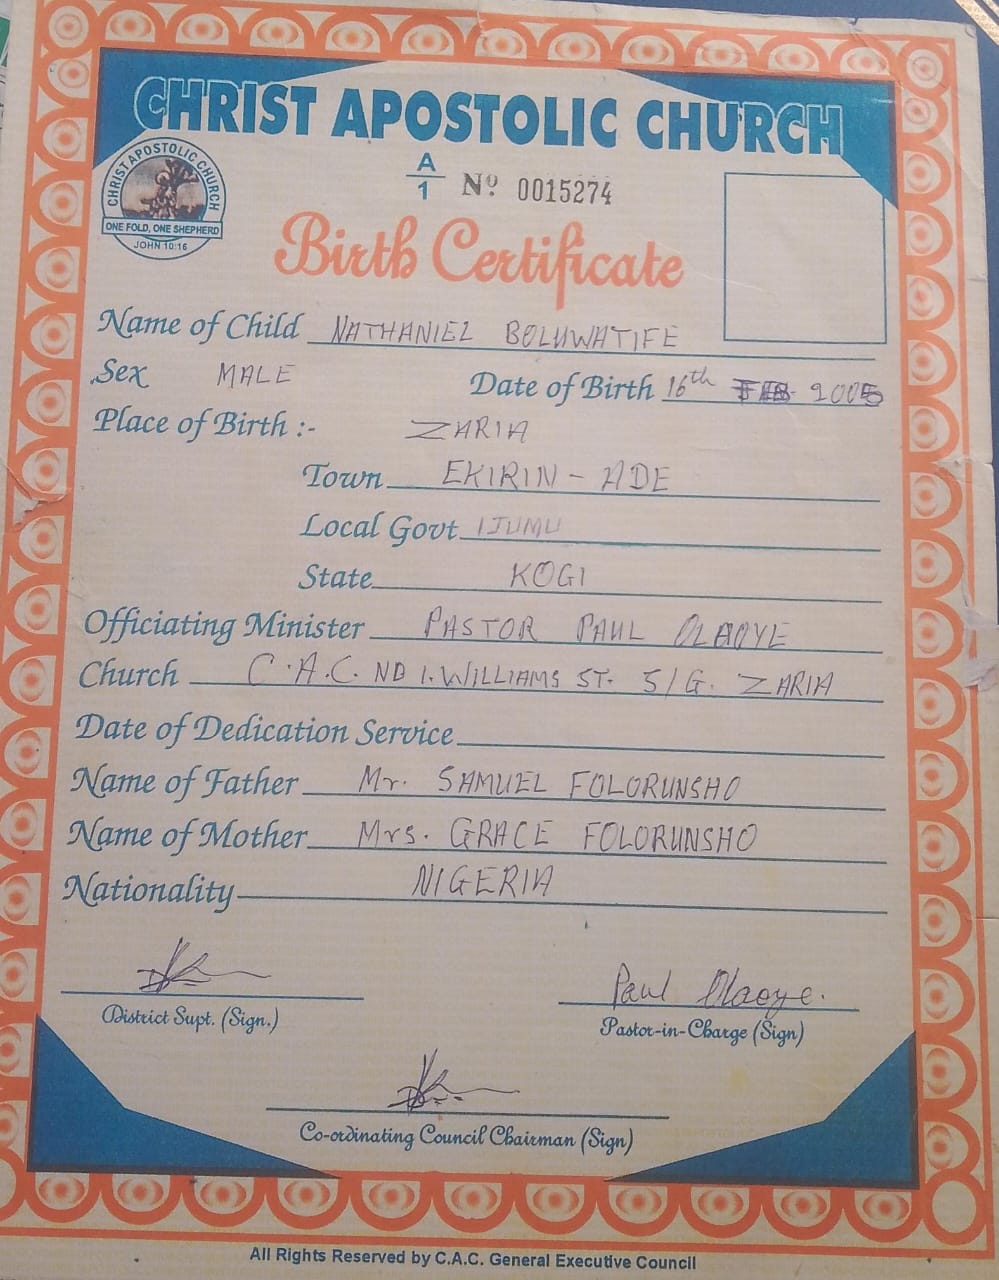 CHRIST APOSTOLIC CHURCH
CHRIST APOSTOLIC CHURCH
ONE FOLD, ONE SHEPHERD
JOHN 10:16
A/1 Nº 0015274
Birth Certificate
Name of Child NATHANIEL BOLUWATIFE
Sex MALE Date of Birth 16th FEB 2005
Place of Birth :- ZARIA
Town EKIRIN - ADE
Local Govt IJUMU
State KOGI
Officiating Minister PASTOR PAUL OLAOYE
Church C.A.C. NO 1. WILLIAMS ST. S/G. ZARIA
Date of Dedication Service
Name of Father Mr. SAMUEL FOLORUNSHO
Name of Mother Mrs. GRACE FOLORUNSHO
Nationality NIGERIA
Paul Olaoye.
District Supt. (Sign.) Pastor-in-Charge (Sign)
Co-ordinating Council Chairman (Sign)
All Rights Reserved by C.A.C. General Executive Council